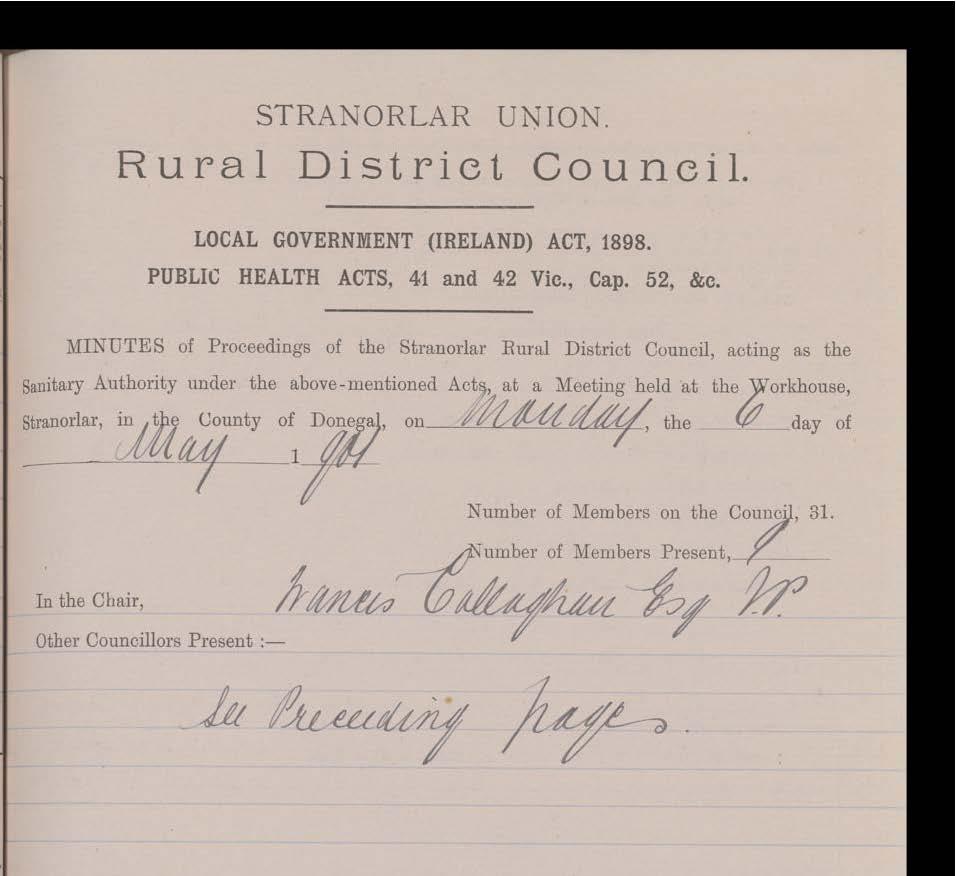 STRANORLAR UNION.
Rural District Council.
LOCAL GOVERNMENT (IRELAND) ACT, 1898.
PUBLIC HEALTH ACTS, 41 and 42 Vic., Cap. 52, &c.
MINUTES of Proceedings of the Stranorlar Rural District Council, acting as the
Sanitary Authority under the above-mentioned Acts, at a Meeting held at the Workhouse,
Stranorlar, in the County of Donegal, on Monday, the 6 day of
May 1901
Number of Members on the Council, 31.
Number of Members Present, 9
In the Chair, Francis Callaghan Esq J.P.
Other Councillors Present :—
See Preceeding pages.